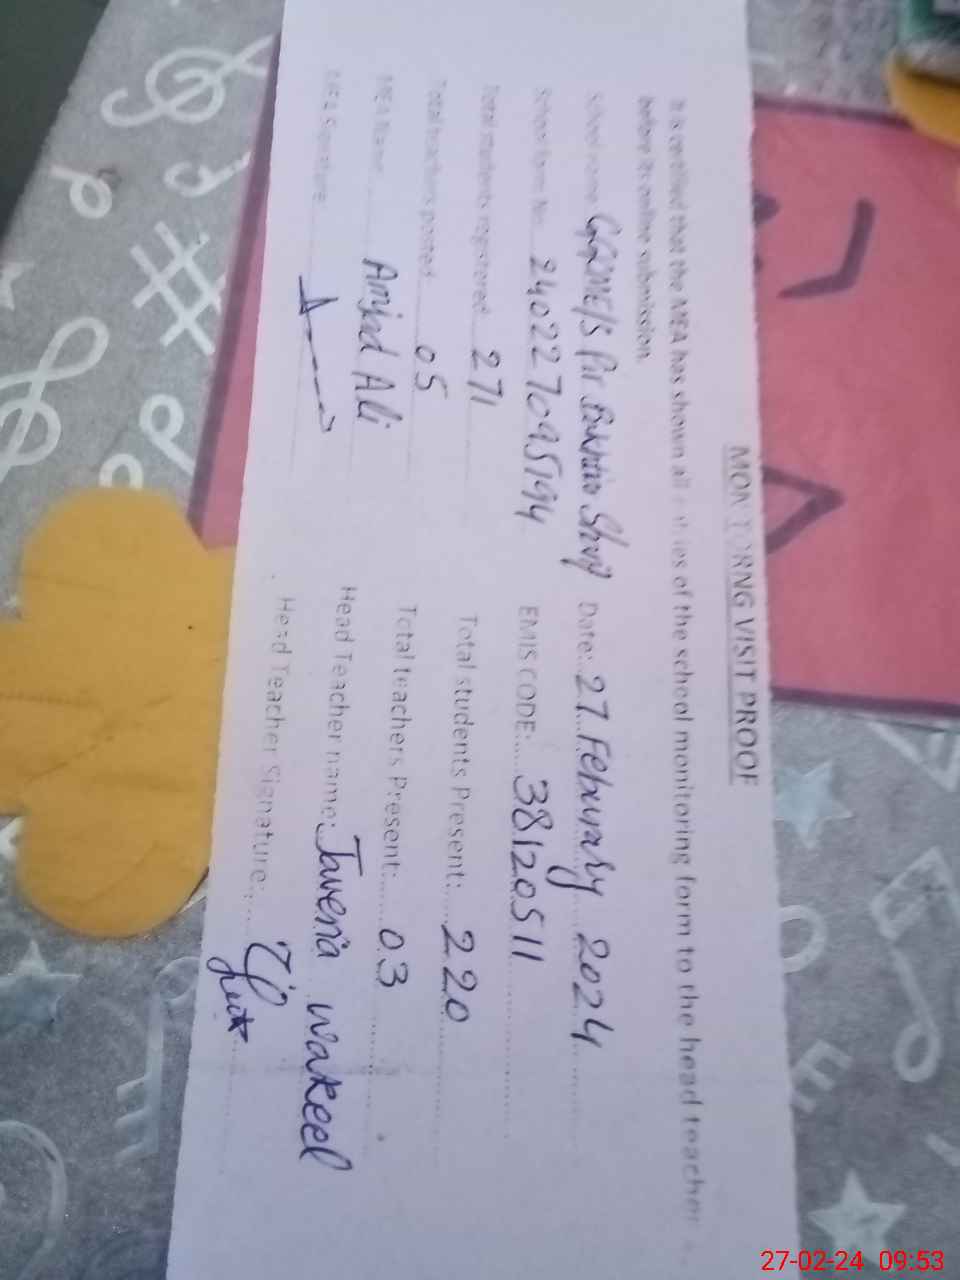 MONITORNG VISIT PROOF
It is certified that the MEA has shown all entries of the school monitoring form to the head teacher
before its online submission.
School name GGME/S Pir Sharif Date: 27 Feburary 2024
School form No. EMIS CODE: 38120511
Total students registered 271 Total students Present: 220
Total teachers posted 05 Total teachers Present: 03
MEA Name Amjad Ali Head Teacher name: Javeria wakeel
MEA Signature: Head Teacher Signature:
27-02-24 09:53